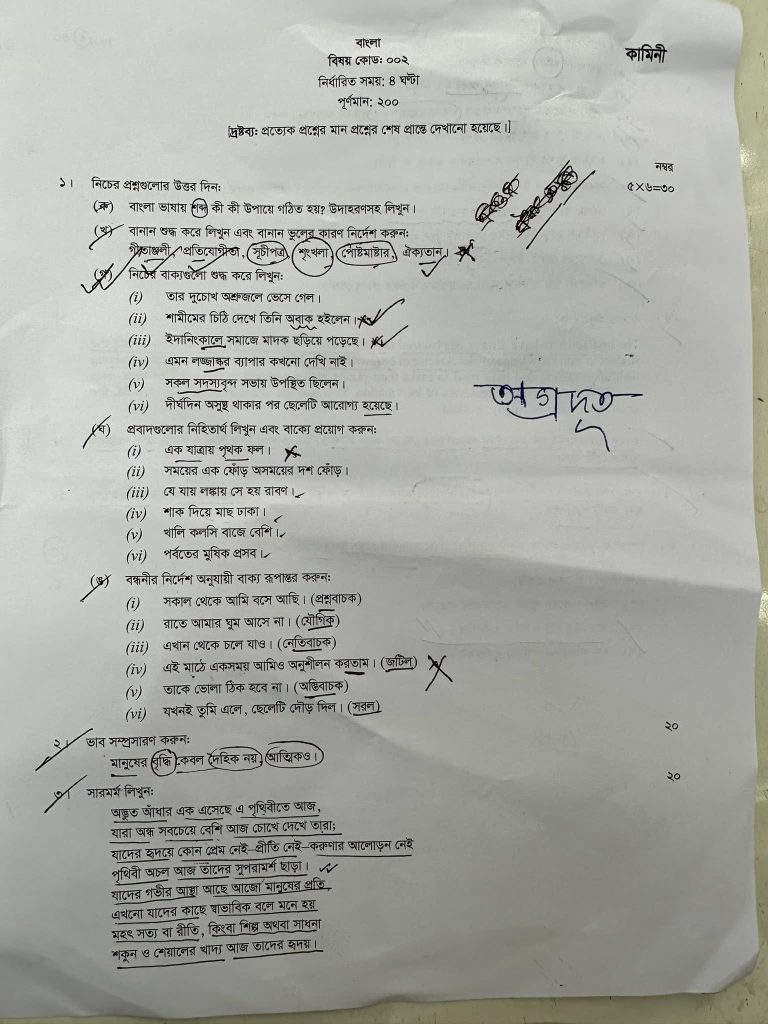 বাংলা
বিষয় কোড: ০০২
কামিনী
নির্ধারিত সময়: ৪ ঘণ্টা
পূর্ণমান: ২০০
[দ্রষ্টব্য: প্রত্যেক প্রশ্নের মান প্রশ্নের শেষ প্রান্তে দেখানো হয়েছে।]
নম্বর
১। নিচের প্রশ্নগুলোর উত্তর দিন: ৫×৬=৩০
(ক) বাংলা ভাষায় শব্দ কী কী উপায়ে গঠিত হয়? উদাহরণসহ লিখুন।
(খ) বানান শুদ্ধ করে লিখুন এবং বানান ভুলের কারণ নির্দেশ করুন:
গীতাঞ্জলী, প্রতিযোগীতা, সূচীপত্র, শৃংখলা, পোষ্টমাষ্টার, ঐক্যতান।
(গ) নিচের বাক্যগুলো শুদ্ধ করে লিখুন:
(i) তার দুচোখ অশ্রুজলে ভেসে গেল।
(ii) শামীমের চিঠি দেখে তিনি অবাক হইলেন।
(iii) ইদানিংকালে সমাজে মাদক ছড়িয়ে পড়েছে।
(iv) এমন লজ্জাষ্কর ব্যাপার কখনো দেখি নাই।
(v) সকল সদস্যবৃন্দ সভায় উপস্থিত ছিলেন।
(vi) দীর্ঘদিন অসুস্থ থাকার পর ছেলেটি আরোগ্য হয়েছে।
অগ্রদূত
(ঘ) প্রবাদগুলোর নিহিতার্থ লিখুন এবং বাক্যে প্রয়োগ করুন:
(i) এক যাত্রায় পৃথক ফল।
(ii) সময়ের এক ফোঁড় অসময়ের দশ ফোঁড়।
(iii) যে যায় লঙ্কায় সে হয় রাবণ।
(iv) শাক দিয়ে মাছ ঢাকা।
(v) খালি কলসি বাজে বেশি।
(vi) পর্বতের মুষিক প্রসব।
(ঙ) বন্ধনীর নির্দেশ অনুযায়ী বাক্য রূপান্তর করুন:
(i) সকাল থেকে আমি বসে আছি। (প্রশ্নবাচক)
(ii) রাতে আমার ঘুম আসে না। (যৌগিক)
(iii) এখান থেকে চলে যাও। (নেতিবাচক)
(iv) এই মাঠে একসময় আমিও অনুশীলন করতাম। (জটিল)
(v) তাকে ভোলা ঠিক হবে না। (অস্তিবাচক)
(vi) যখনই তুমি এলে, ছেলেটি দৌড় দিল। (সরল)
২। ভাব সম্প্রসারণ করুন: ২০
মানুষের বৃদ্ধি কেবল দৈহিক নয়, আত্মিকও।
৩। সারমর্ম লিখুন: ২০
অদ্ভুত আঁধার এক এসেছে এ পৃথিবীতে আজ,
যারা অন্ধ সবচেয়ে বেশি আজ চোখে দেখে তারা;
যাদের হৃদয়ে কোন প্রেম নেই–প্রীতি নেই–করুণার আলোড়ন নেই
পৃথিবী অচল আজ তাদের সুপরামর্শ ছাড়া।
যাদের গভীর আস্থা আছে আজো মানুষের প্রতি
এখনো যাদের কাছে স্বাভাবিক বলে মনে হয়
মহৎ সত্য বা রীতি, কিংবা শিল্প অথবা সাধনা
শকুন ও শেয়ালের খাদ্য আজ তাদের হৃদয়।